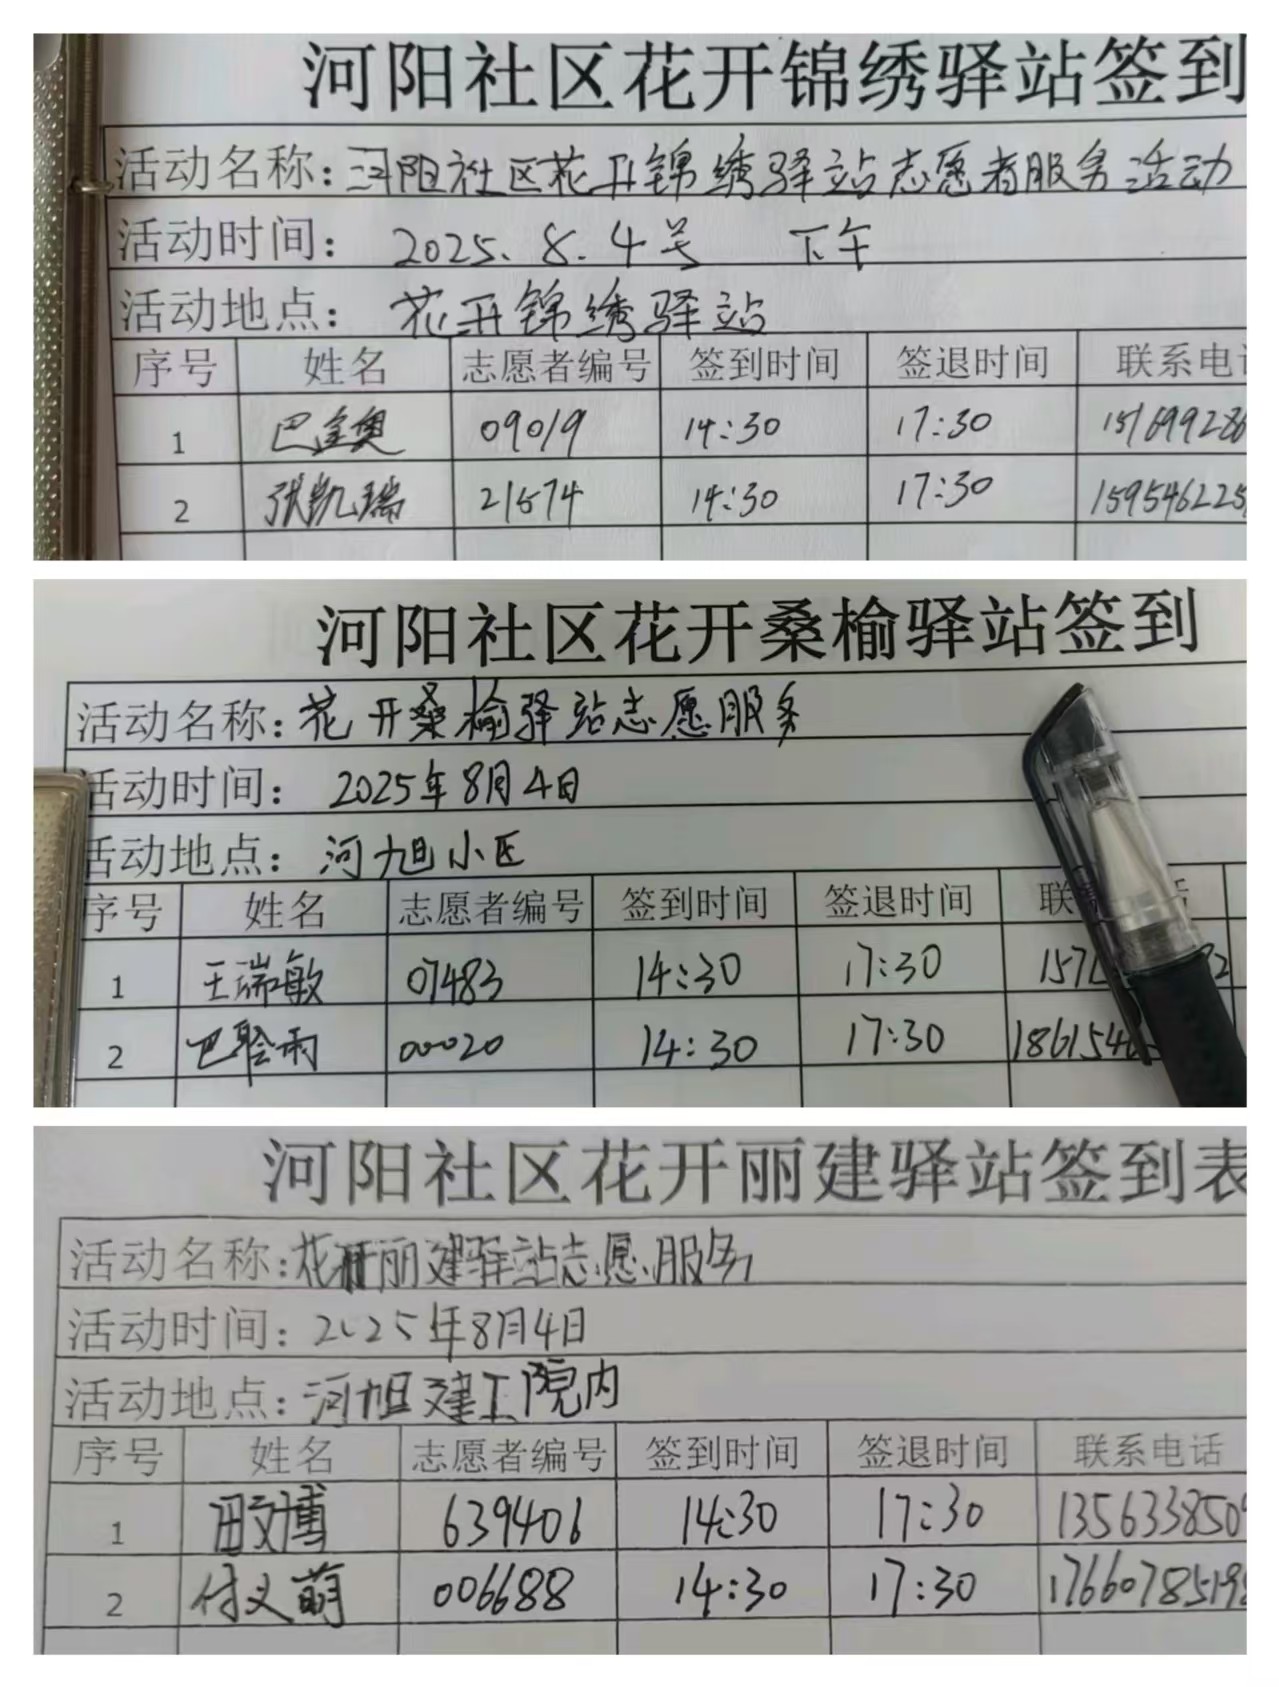 河阳社区花开锦绣驿站签到
活动名称：河阳社区花开锦绣驿站志愿者服务活动
活动时间： 2025.8.4号 下午
活动地点： 花开锦绣驿站
序号 姓名 志愿者编号 签到时间 签退时间 联系电话
1 巴金奥 09019 14:30 17:30 151699286
2 张凯瑞 21574 14:30 17:30 159546225
河阳社区花开桑榆驿站签到
活动名称：花开桑榆驿站志愿服务
活动时间： 2025年8月4日
活动地点： 河旭小区
序号 姓名 志愿者编号 签到时间 签退时间 联
1 王瑞敏 07483 14:30 17:30 157
2 巴聆雨 00020 14:30 17:30 186154
河阳社区花开丽建驿站签到表
活动名称：花开丽建驿站志愿服务
活动时间：2025年8月4日
活动地点：河旭建工院内
序号 姓名 志愿者编号 签到时间 签退时间 联系电话
1 田文博 639401 14:30 17:30 135633850
2 付义萌 006688 14:30 17:30 1766078519